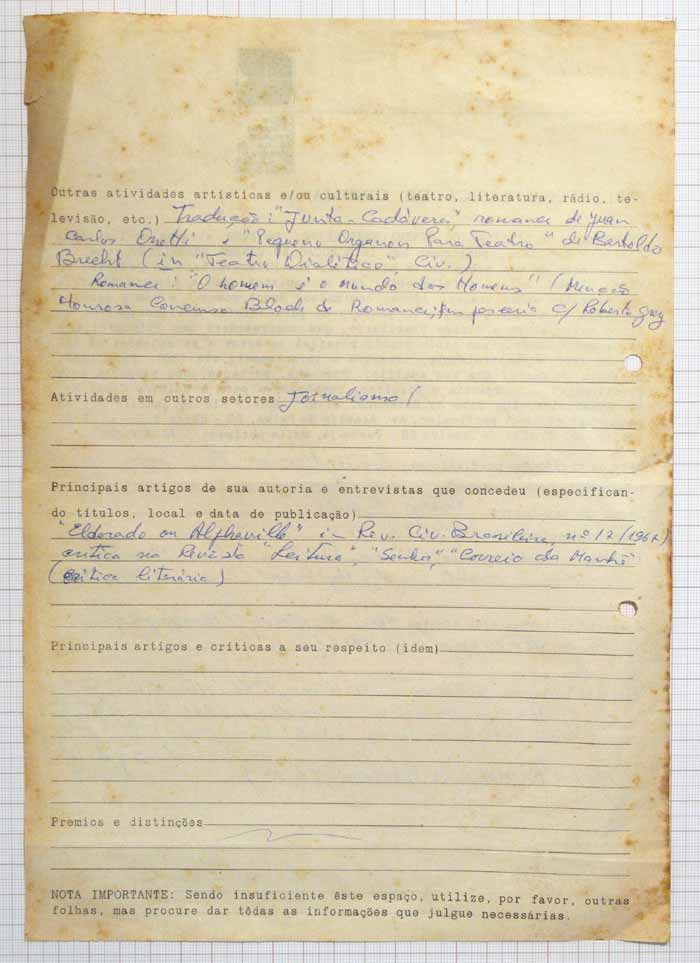 Outras atividades artísticas e/ou culturais (teatro, literatura, rádio, te-
levisão, etc.) Tradução: "Junta-Cadáveres", romance de Juan
Carlos Onetti e "Pequeno Organon Para Teatro" de Bertoldo
Brecht (in "Teatro Dialético" Civ.)
Romance: "O homem é o mundo dos Homens" (Menção
Honrosa Concurso Bloch de Romance, em parceria c/ Roberto
Atividades em outros setores Jornalismo/
Principais artigos de sua autoria e entrevistas que concedeu (especifican-
do títulos, local e data de publicação)
"Eldorado ou Alphaville", in Rev. Civ. Brasileira, nº 12 (1967)
crítica na Revista "Leitura", "Senhor", "Correio da Manhã"
(crítica literária)
Principais artigos e críticas a seu respeito (idem)
Premios e distinções
NOTA IMPORTANTE: Sendo insuficiente êste espaço, utilize, por favor, outras
folhas, mas procure dar tôdas as informações que julgue necessárias.